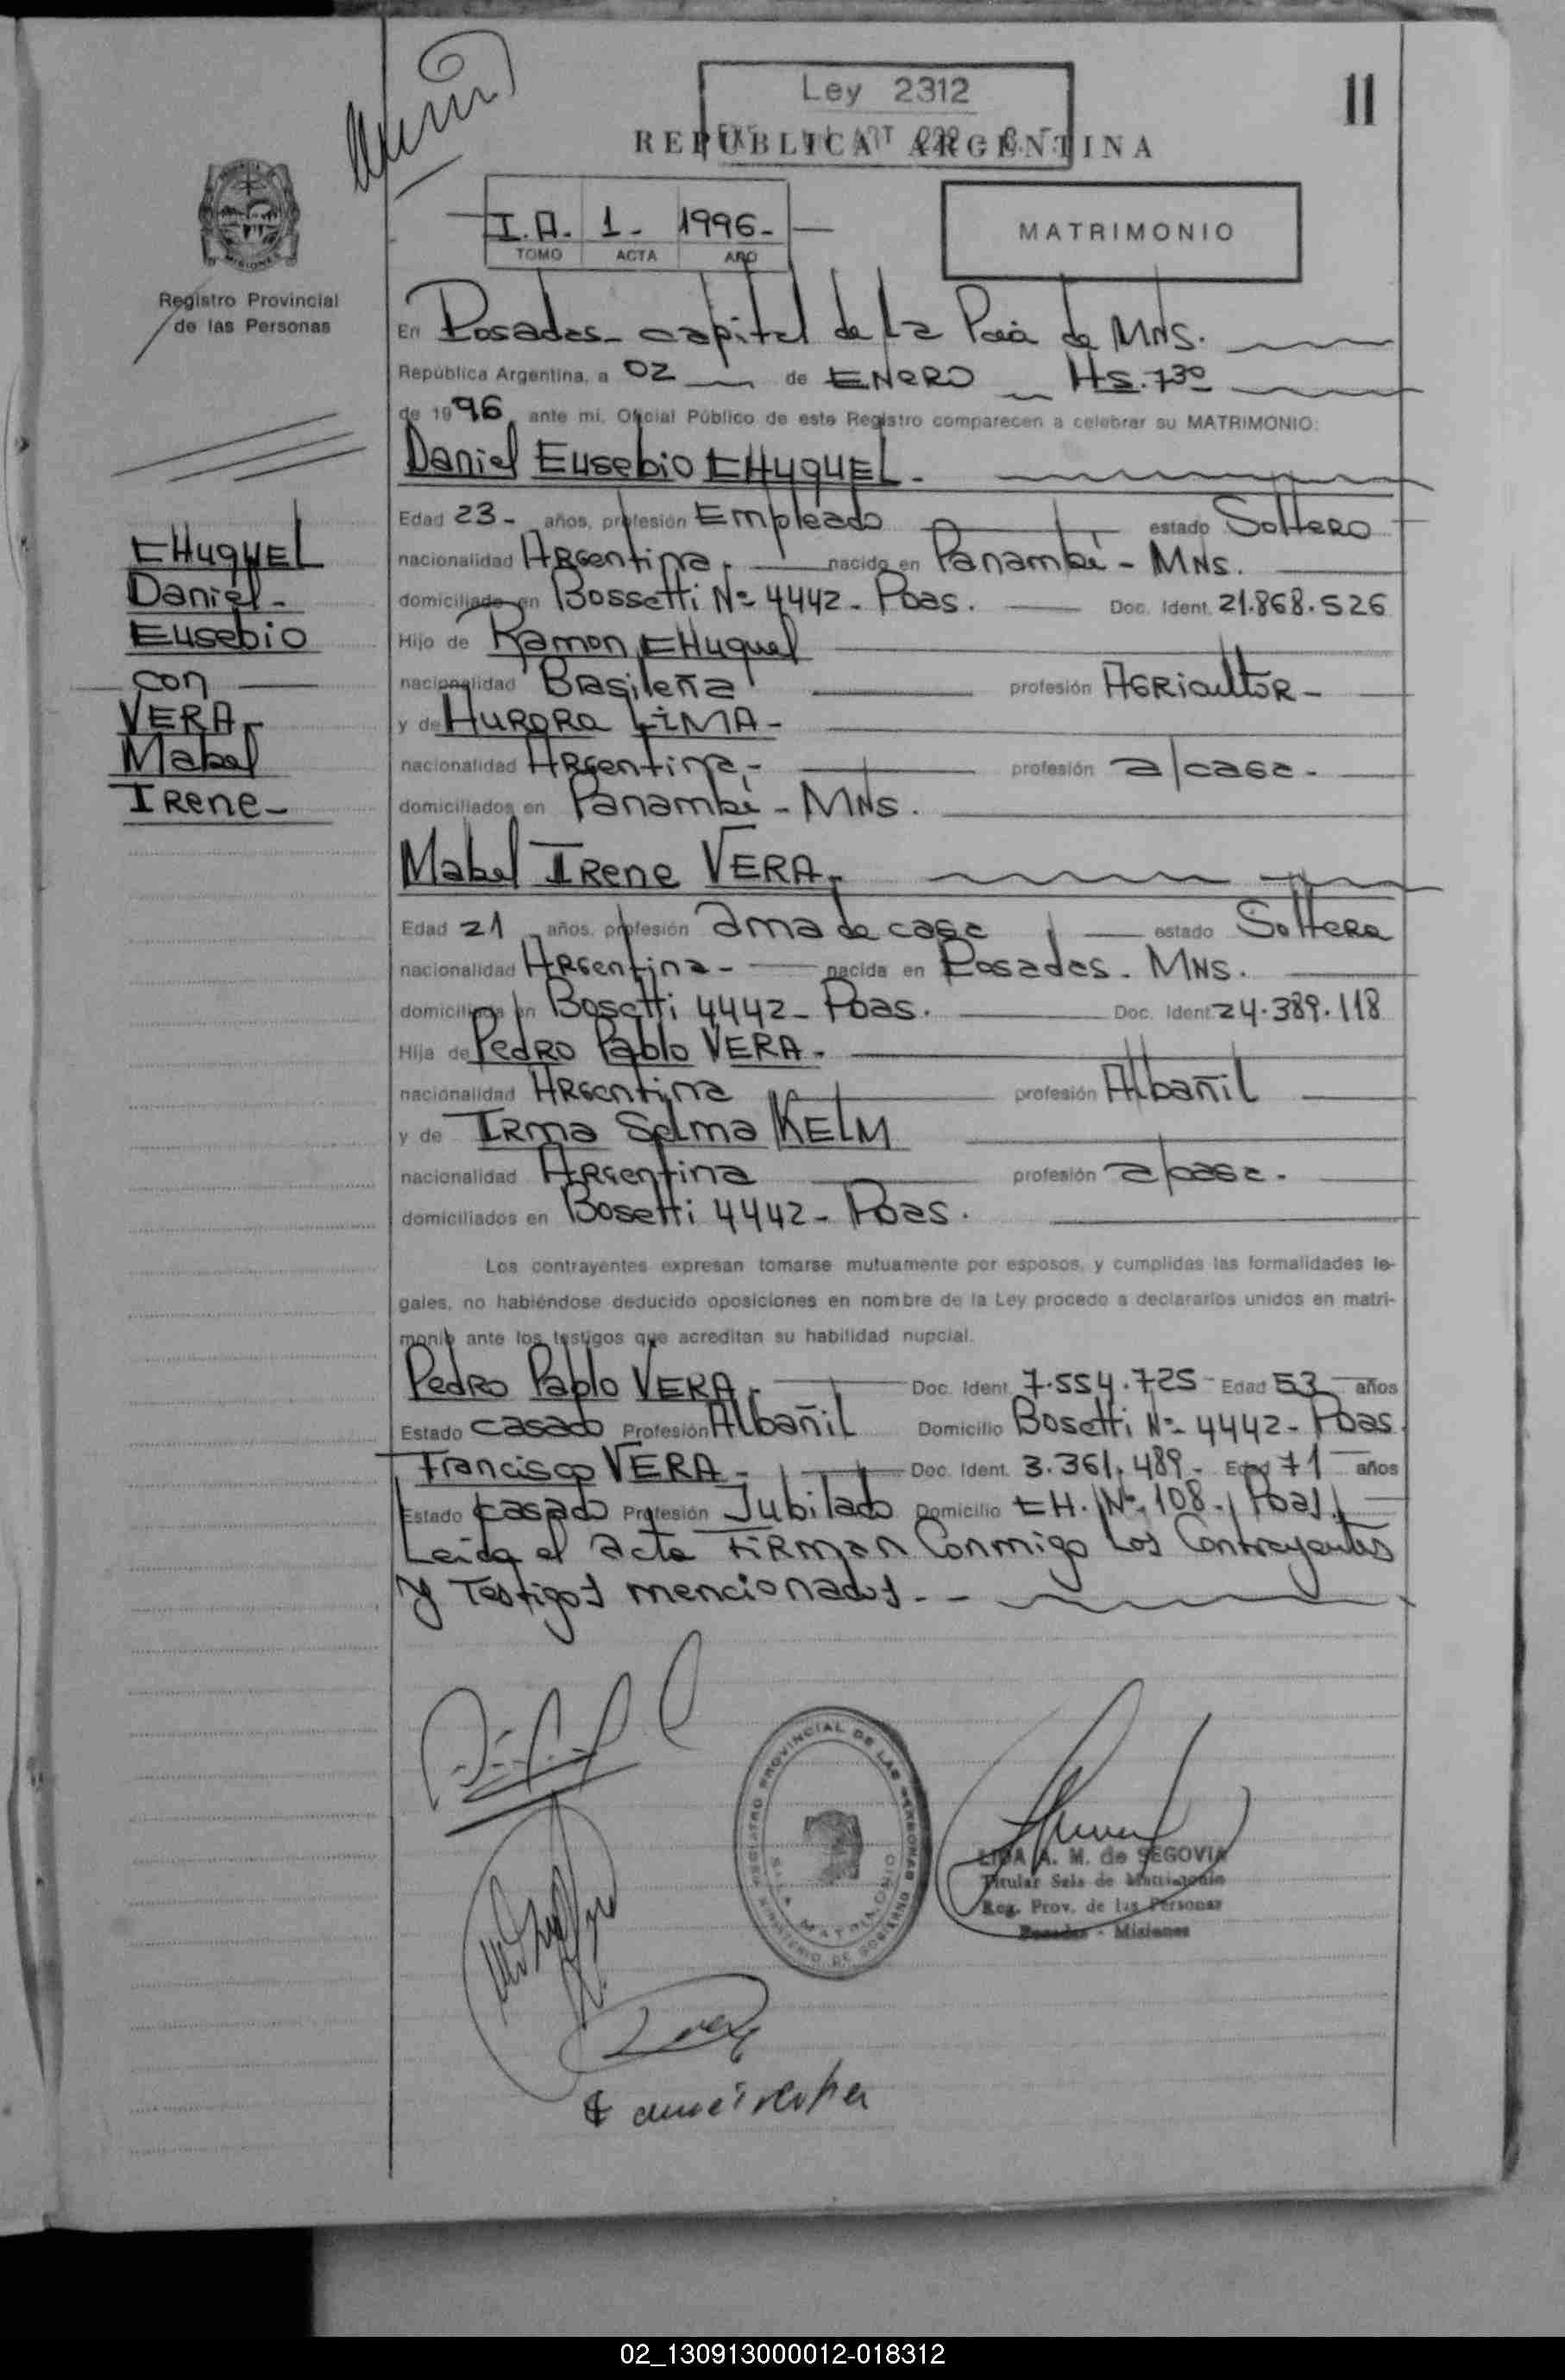 Ley 2312
11
REPUBLICA ARGENTINA
I.A. 1- 1996-
TOMO ACTA AÑO
MATRIMONIO
Registro Provincial
de las Personas
En Posadas- capital de la Pcia de MNS.
República Argentina, a 02 de ENERO Hs. 7³⁰
de 1996 ante mi, Oficial Público de este Registro comparecen a celebrar su MATRIMONIO:
Daniel Eusebio CHUQUEL-
Edad 23- años, profesión Empleado estado Soltero
nacionalidad Argentina- nacido en Panambí - MNS.
domiciliado en Bossetti Nº 4442- Poas. Doc. Ident. 21.868.526
Hijo de Ramon CHuquel
nacionalidad Brasileña profesión Agricultor-
y de Aurora LIMA-
nacionalidad Argentina,- profesión a/casa-
domiciliados en Panambí - MNS.
Mabel Irene VERA-
Edad 21 años, profesión ama de casa estado Soltera
nacionalidad Argentina- nacida en Posadas- MNS.
domiciliada en Bosetti 4442- Poas. Doc. Ident. 24.389.118
Hija de Pedro Pablo VERA-
nacionalidad Argentina profesión Albañil
y de Irma Selma KELM
nacionalidad Argentina profesión a/casa-
domiciliados en Bosetti 4442- Poas.
Los contrayentes expresan tomarse mutuamente por esposos, y cumplidas las formalidades le-
gales, no habiéndose deducido oposiciones en nombre de la Ley procedo a declararlos unidos en matri-
monio ante los testigos que acreditan su habilidad nupcial.
Pedro Pablo VERA- Doc. Ident. 7.554.725- Edad 53 años
Estado casado Profesión Albañil Domicilio Bosetti Nº 4442- Poas.
Francisco VERA- Doc. Ident. 3.361.489- Edad 71 años
Estado casado Profesión Jubilado Domicilio CH. Nº 108- Poas.
Leida el acta firman Conmigo Los Contrayentes
y Testigos mencionados--
CHUQUEL
Daniel-
Eusebio
con
VERA-
Mabel
Irene-
REGISTRO PROVINCIAL DE LAS PERSONAS
MINISTERIO DE GOBIERNO
SALA MATRIMONIO
LIDA A. M. de SEGOVIA
Titular Sala de Matrimonio
Reg. Prov. de las Personas
Posadas - Misiones
02_130913000012-018312